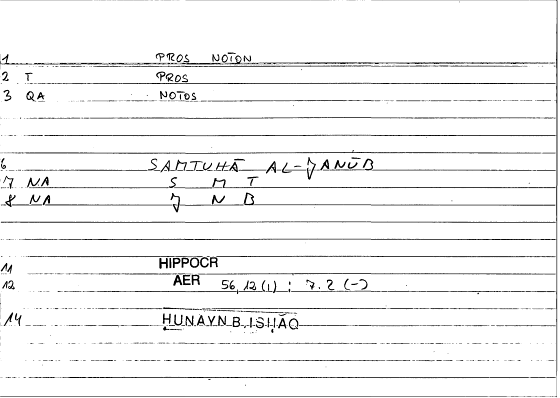 1 PROS NOTON
2 T PROS
3 QA NOTOS
6 SAMTUHĀ AL-JANŪB
7 NA S M T
8 NA J N B
11 HIPPOCR
12 AER 56,12(1) : 7.2 (-)
14 ḤUNAYN B. ISḤĀQ